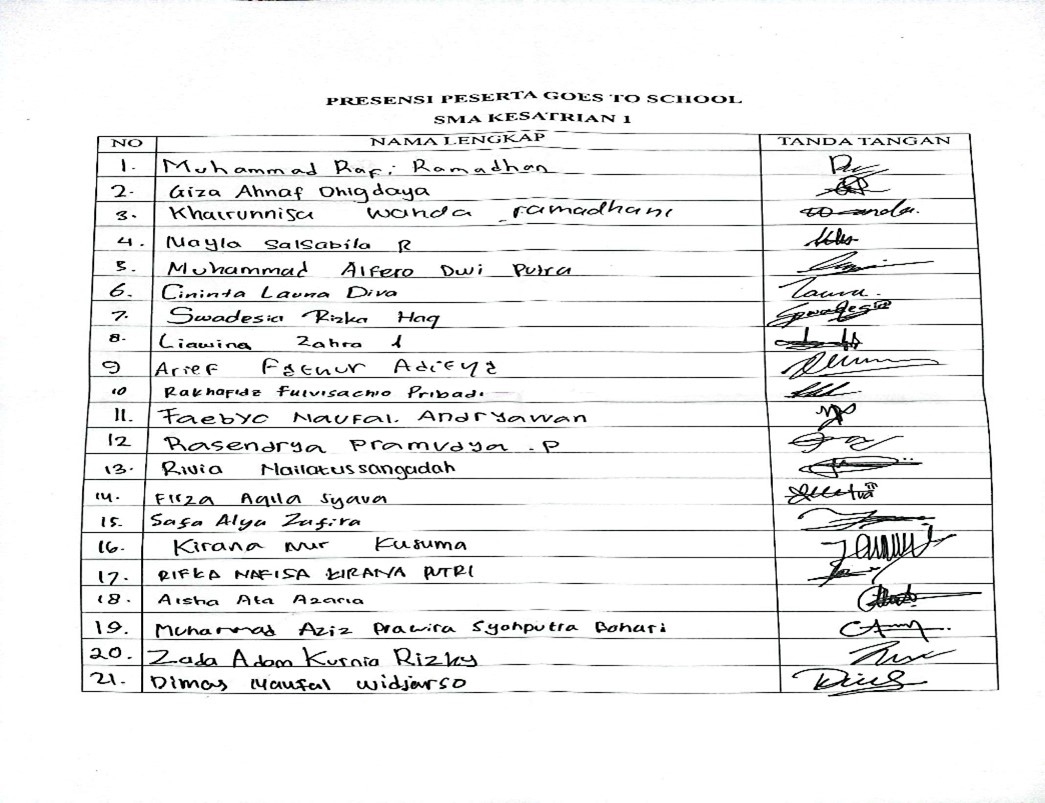 PRESENSI PESERTA GOES TO SCHOOL
SMA KESATRIAN 1
NO NAMA LENGKAP TANDA TANGAN
1. Muhammad Rafi Ramadhan
2. Giza Ahnaf Dhigdaya
3. Khairunnisa wanda ramadhani
4. Nayla Salsabila R
5. Muhammad Alfero Dwi Putra
6. Cininta Launa Diva
7. Swadesia Rizka Haq
8. Liawina Zahra
9 Arief Fathur Aditya
10 Rakhafidz Fulvisachio Pribadi
11. Faebyo Naufal. Andryawan
12 Rasendrya Pramudya . P
13. Rivia Nailatussangadah
14. Firza Aqila Syava
15. Safa Alya Zafira
16. Kirana Nur Kusuma
17. RIFKA NAFISA KIRANA PUTRI
18. Aisha Ata Azaria
19. Muhammad Aziz Prawira Syahputra Bohari
20. Zada Adam Kurnia Rizky
21. Dimas Naufal Widjarso